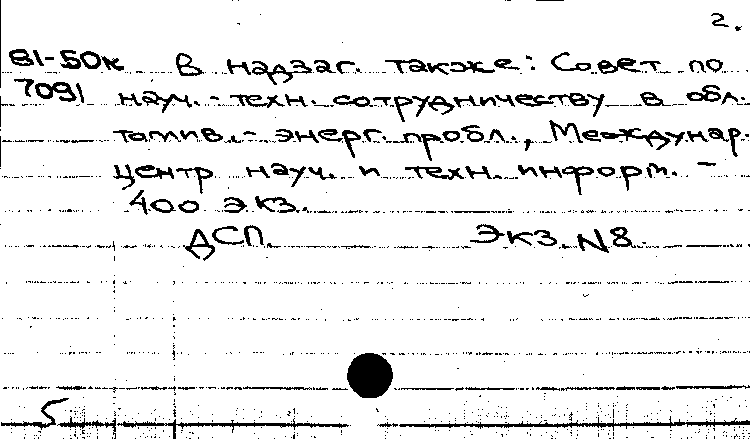 2.
81-50к В надзаг. также: Совет по
7091 науч.-техн. сотрудничеству в обл.
топлив.-энерг. пробл., Междунар.
центр науч. и техн. информ. –
400 экз.
ДСП. Экз. N8.
5